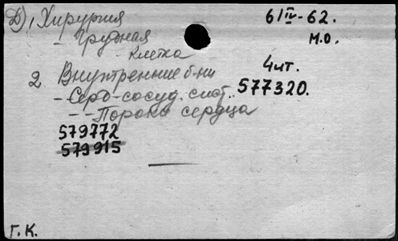 D) 1 Хирургия 6/IV-62.
- Грудная М.О.
- Клетка
2. Внутренние б-ни 4 чт.
- Серд-сосуд. сист. 577320.
-- Порока сердца
579772
579915
Г.К.